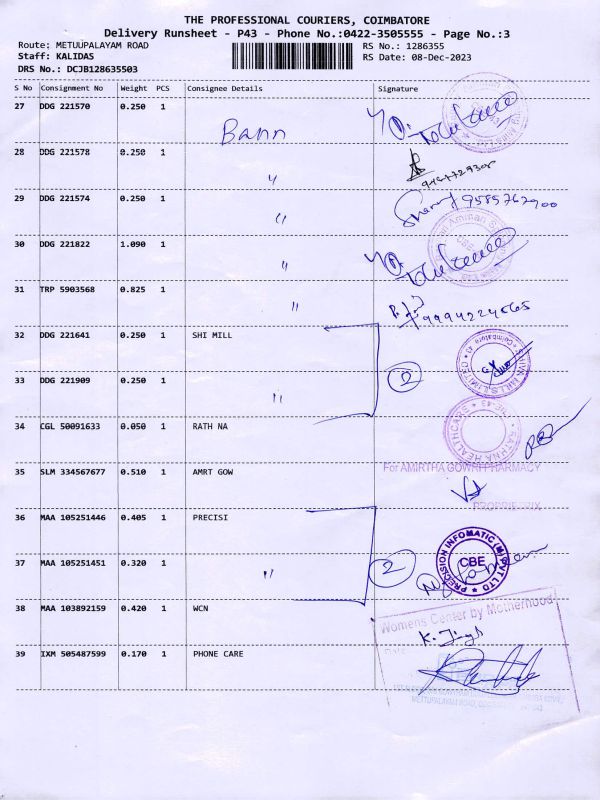 THE PROFESSIONAL COURIERS, COIMBATORE
Delivery Runsheet - P43 - Phone No.:0422-3505555 - Page No.:3
Route: METUUPALAYAM ROAD RS No.: 1286355
Staff: KALIDAS RS Date: 08-Dec-2023
DRS No.: DCJB128635503
S No Consignment No Weight PCS Consignee Details Signature
27 DDG 221570 0.250 1 Bann
28 DDG 221578 0.250 1 〃
29 DDG 221574 0.250 1 〃 9585762900
30 DDG 221822 1.090 1 〃
31 TRP 5903568 0.825 1 〃
32 DDG 221641 0.250 1 SHI MILL
33 DDG 221909 0.250 1 〃 2
34 CGL 50091633 0.050 1 RATH NA RATHNA HEALTHCARE
35 SLM 334567677 0.510 1 AMRT GOW For AMIRTHA GOWRI PHARMACY
PROPRIETRIX
36 MAA 105251446 0.405 1 PRECISI
37 MAA 105251451 0.320 1 〃 2 PRECISION INFOMATIC (M) PVT LTD CBE
38 MAA 103892159 0.420 1 WCN Womens Center by Motherhood
39 IXM 505487599 0.170 1 PHONE CARE